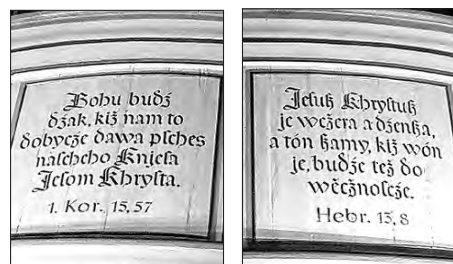 Bohu budź
dżak, kiż nam to
dobycże dawa pſches
naſcheho Knieſa
Jeſom Khryſta.
1. Kor. 15,57
Jeſuß Khryſtuß
je wcżera a dżenßa,
a tón ßamy, kiż wón
je, budże też do
wěcżnoſcże.
Hebr. 13, 8